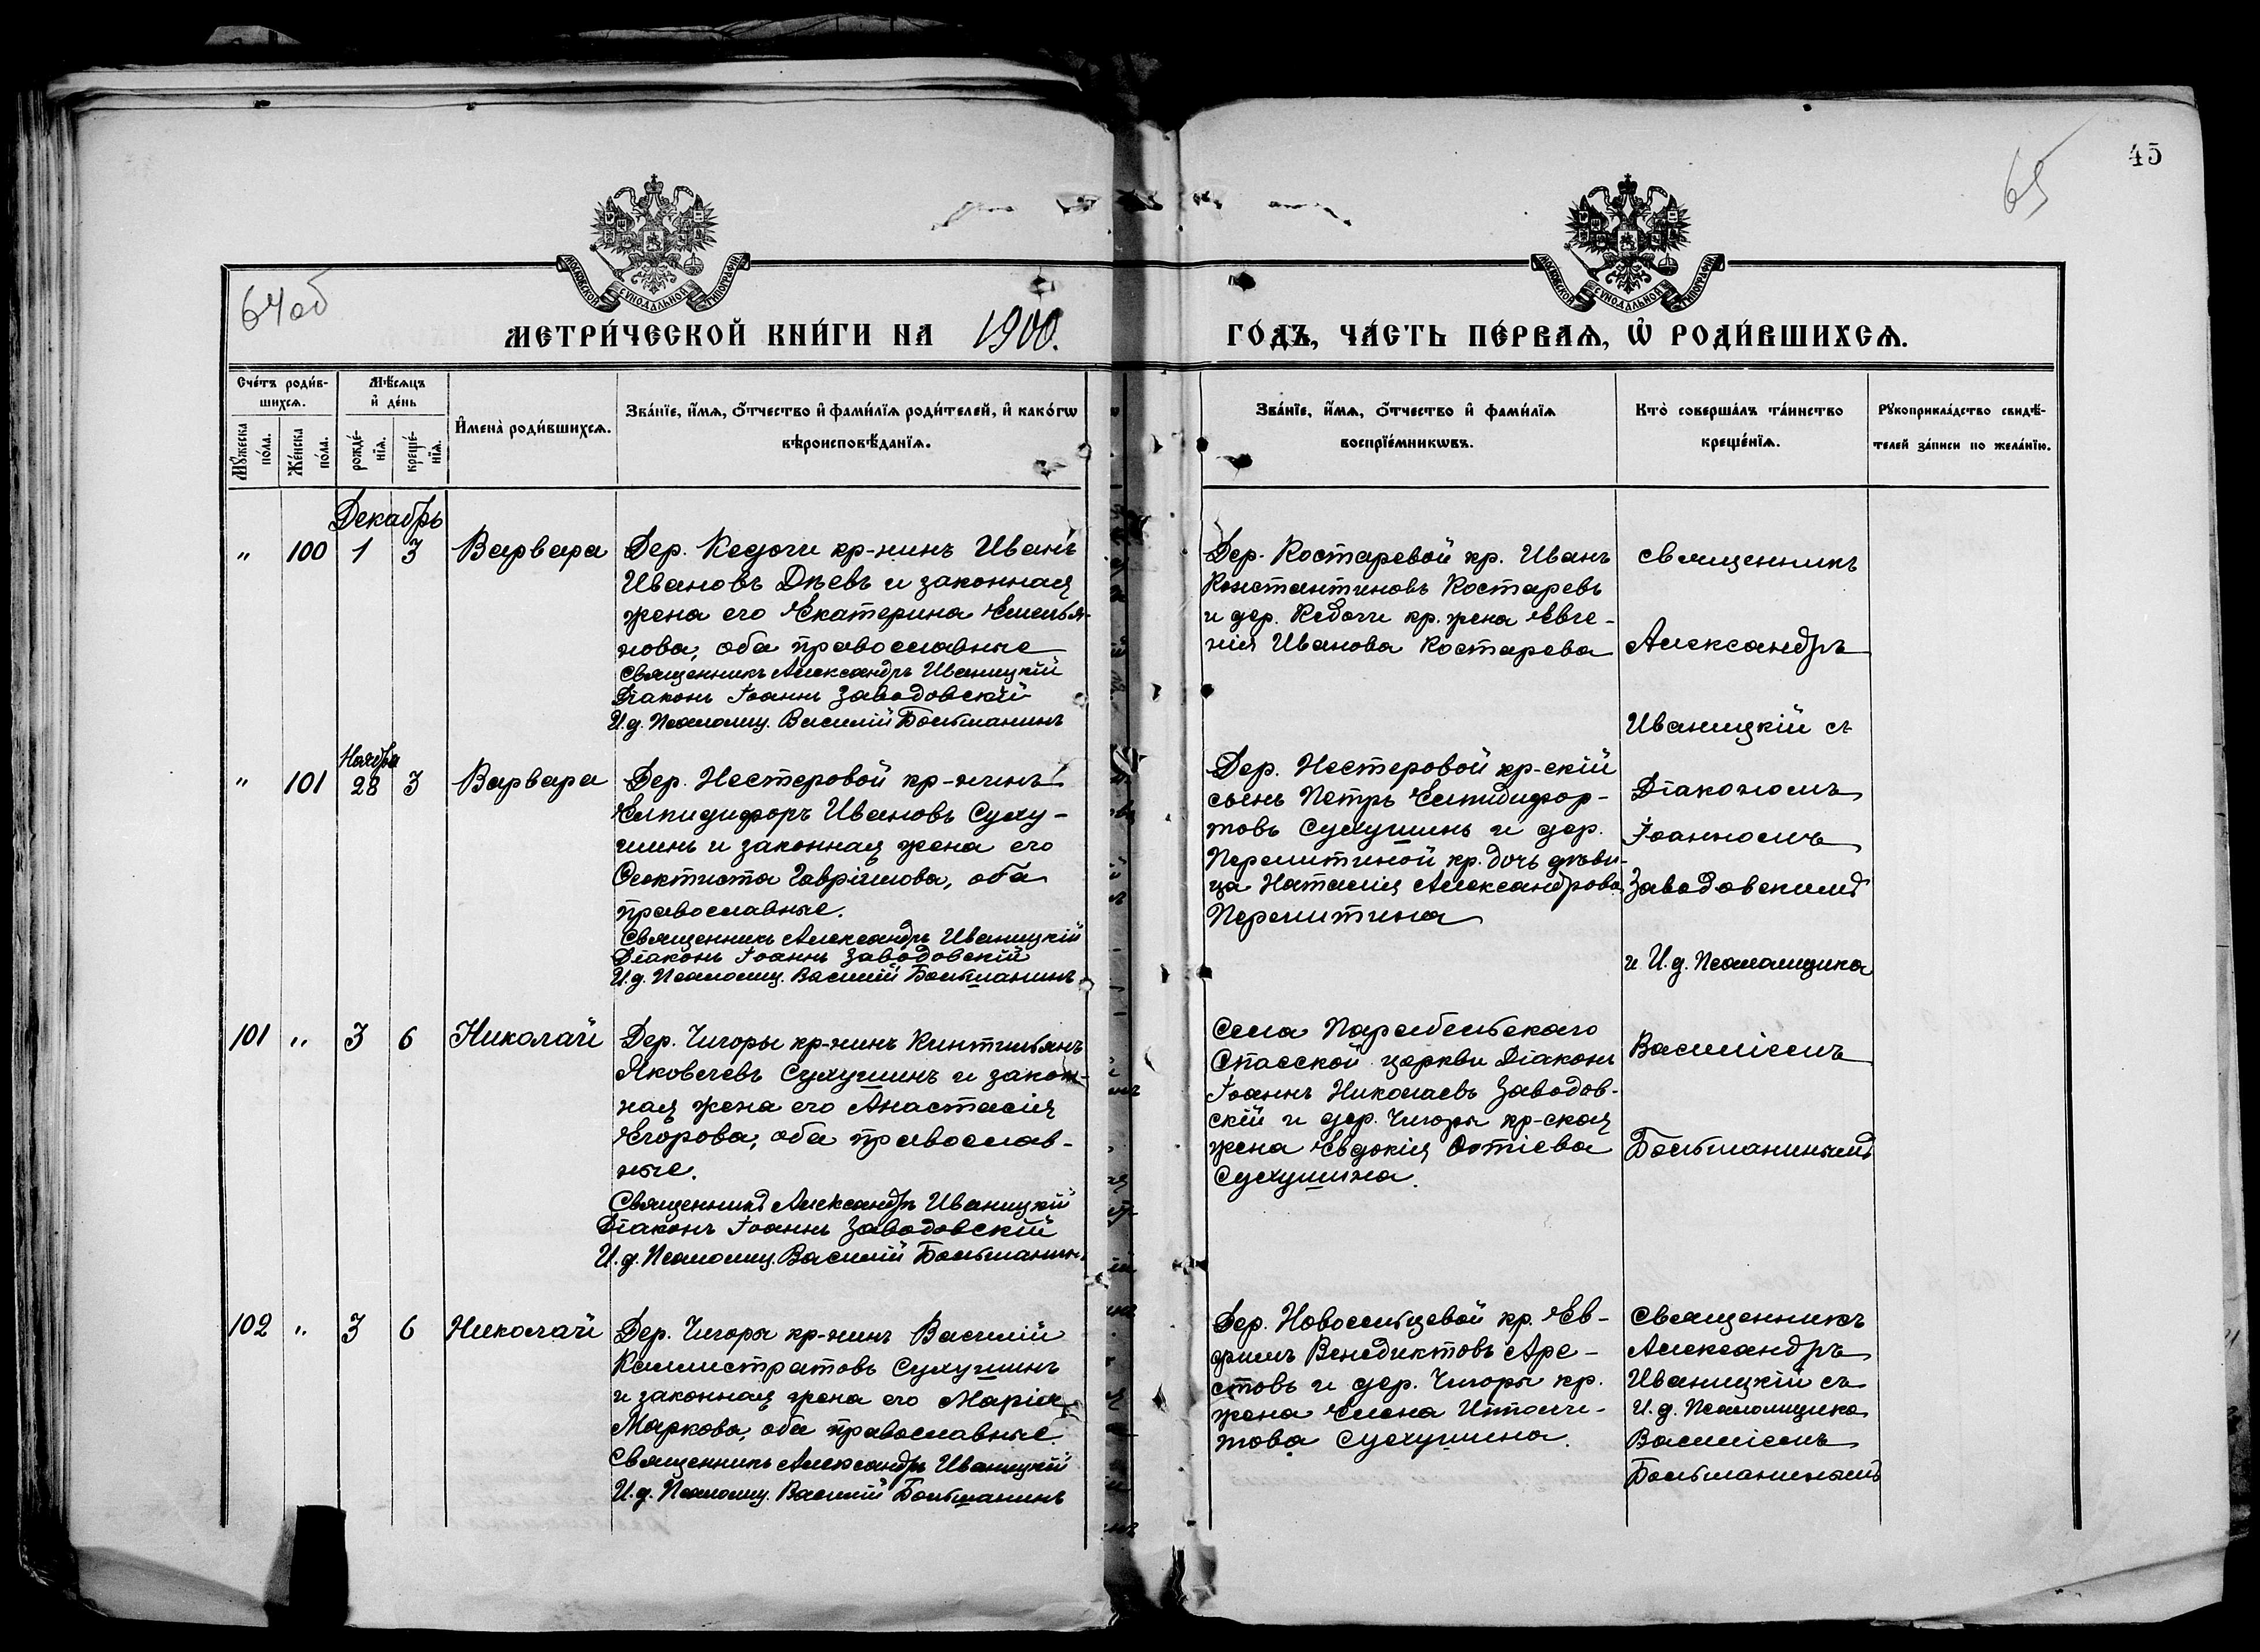 45
65
64об
МОСКОВСКОЙ СУНОДАЛЬНОЙ ТИПОГРАФІИ
МОСКОВСКОЙ СУНОДАЛЬНОЙ ТИПОГРАФІИ
МЕТРИ́ЧЕСКОЙ КНИ́ГИ НА 1900.
ГО́ДЪ, ЧА́СТЬ ПЕ́РВАѦ, Ѡ҆ РОДИ́ВШИХСѦ.
Сче́тъ роди́в-
шихсѧ.
Мѣ́сѧцъ
и҆ де́нь
Мꙋ́жеска
по́ла.
Же́нска
по́ла.
рожде́-
нїѧ.
креще́-
нїѧ.
И҆мена̀ роди́вшихсѧ.
Зва́нїе, и҆́мѧ, ѻ҆́тчество и҆ фами́лїѧ роди́телей, и҆ како́гѡ
вѣроисповѣ́данїѧ.
Зва́нїе, и҆́мѧ, ѻ҆́тчество и҆ фами́лїѧ
воспрїе́мникѡвъ.
Кто̀ соверша́лъ та́инство
креще́нїѧ.
Рꙋкоприкла́дство свидѣ́-
телей за́писи по жела́нїю.
Декабрь
" 100 1 3 Варвара
Дер. Кедоги кр-нинъ Иванъ
Ивановъ Дѣевъ и законная
жена его Екатерина Емелья-
нова, оба православные
Священникъ Александръ Иваницкій
Діаконъ Іоаннъ Заводовскій
И.д. Псаломщ. Василій Больманинъ
Дер. Костаревой кр. Иванъ
Константиновъ Костаревъ
и дер. Кедоги кр. жена Евге-
нія Иванова Костарева
Священникъ
Александръ
Иваницкій съ
Ноября
" 101 28 3 Варвара
Дер. Нестеровой кр-нинъ
Елпидифоръ Ивановъ Суху-
шинъ и законная жена его
Феоктиста Гавріилова, оба
православные.
Священникъ Александръ Иваницкій
Діаконъ Іоаннъ Заводовскій
И.д. Псаломщ. Василій Больманинъ
Дер. Нестеровой кр-скій
сынъ Петръ Елпидифор-
товъ Сухушинъ и дер.
Перемитиной кр. дочь дѣви-
ца Наталія Александрова
Перемитина
Діакономъ
Іоанномъ
Заводовскимъ
и И.д. Псаломщика
101 " 3 6 Николай
Дер. Чигоры кр-нинъ Кинтильянъ
Яковлевъ Сухушинъ и закон-
ная жена его Анастасія
Егорова, оба православ-
ные.
Священникъ Александръ Иваницкій
Діаконъ Іоаннъ Заводовскій
И.д. Псаломщ. Василій Больманинъ
Села Парабельскаго
Спасской церкви Діаконъ
Іоаннъ Николаевъ Заводов-
скій и дер. Чигоры кр-ская
жена Евдокія Фотіева
Сухушина.
Василіемъ
Больманинымъ
102 " 3 6 Николай
Дер. Чигоры кр-нинъ Василій
Каллистратовъ Сухушинъ
и законная жена его Марія
Маркова, оба православные.
Священникъ Александръ Иваницкій
И.д. Псаломщ. Василій Больманинъ
Дер. Новосельцевой кр. Ев-
фимъ Венедиктовъ Аре-
стовъ и дер. Чигоры кр.
жена Елена Ипполи-
това Сухушина.
Священникъ
Александръ
Иваницкій съ
И.д. Псаломщика
Василіемъ
Больманинымъ